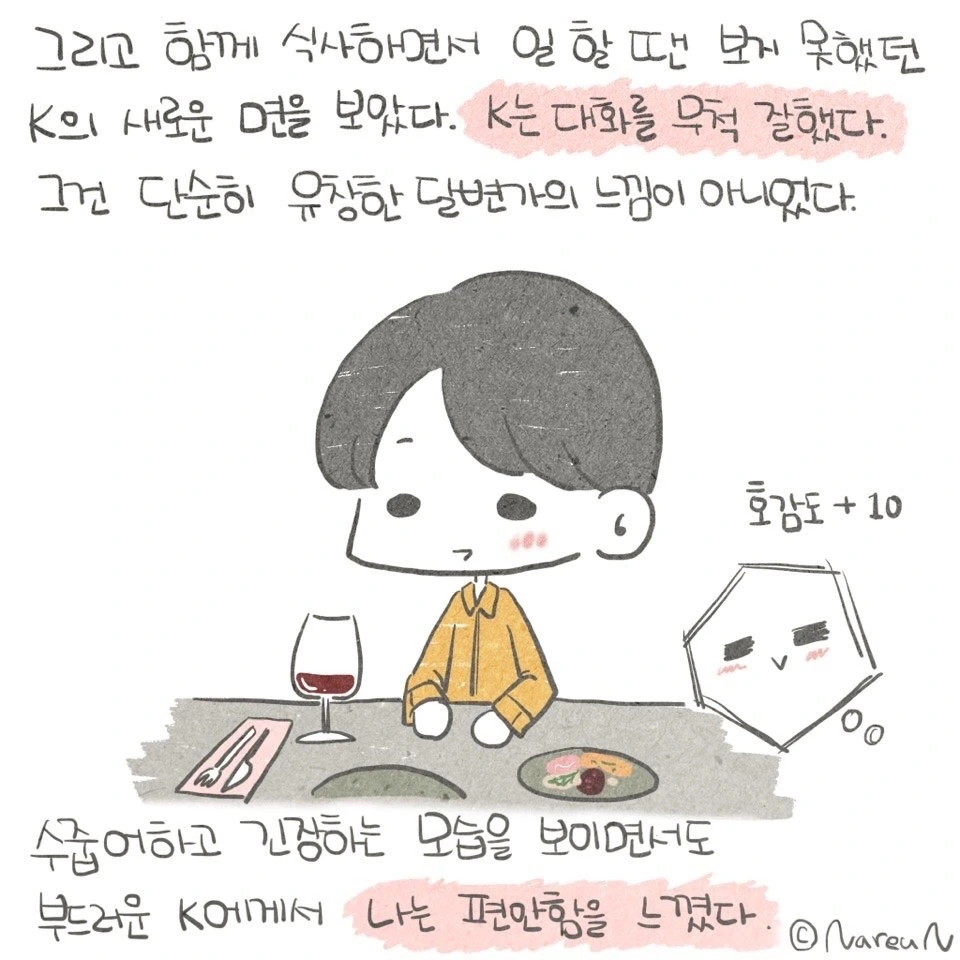 그리고 함께 식사하면서 일 할 땐 보지 못했던
K의 새로운 면을 보았다. K는 대화를 무척 잘했다.
그건 단순히 유창한 달변가의 느낌이 아니었다.
호감도 + 10
수줍어하고 긴장하는 모습을 보이면서도
부드러운 K에게서 나는 편안함을 느꼈다.
© NareuN